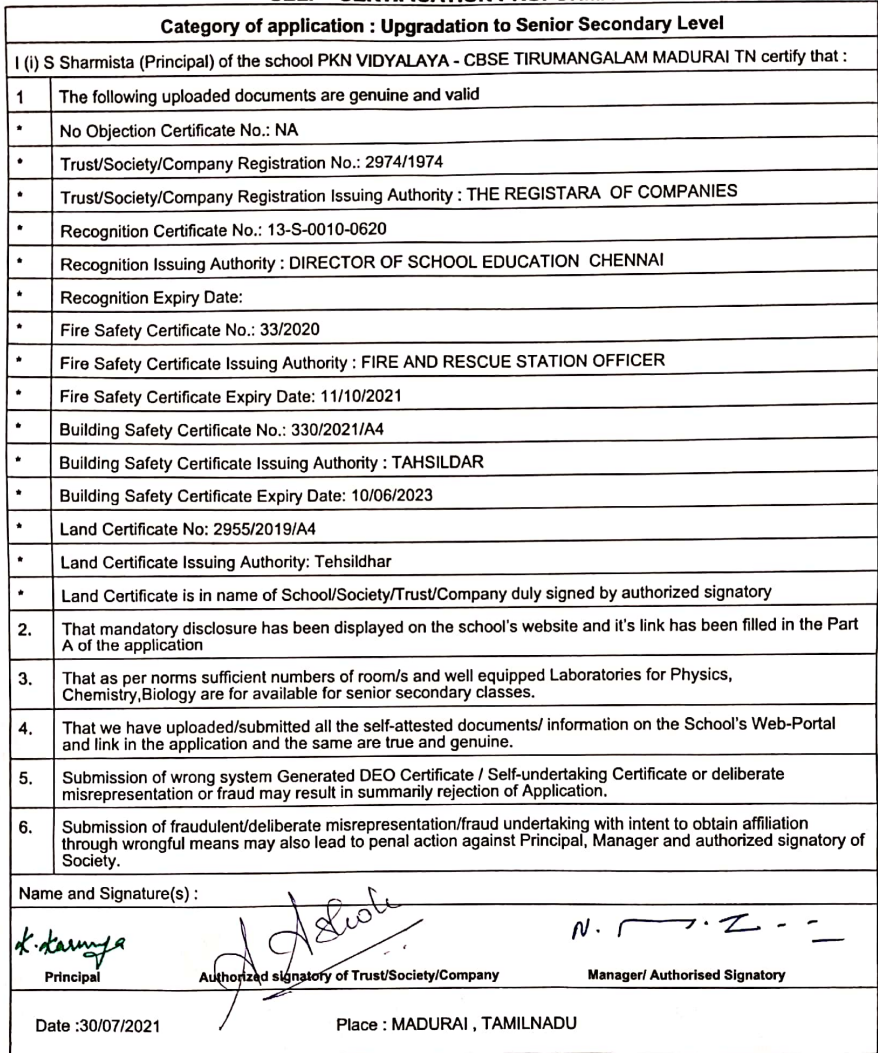 Category of application : Upgradation to Senior Secondary Level
I (i) S Sharmista (Principal) of the school PKN VIDYALAYA - CBSE TIRUMANGALAM MADURAI TN certify that :
1 The following uploaded documents are genuine and valid
* No Objection Certificate No.: NA
* Trust/Society/Company Registration No.: 2974/1974
* Trust/Society/Company Registration Issuing Authority : THE REGISTARA OF COMPANIES
* Recognition Certificate No.: 13-S-0010-0620
* Recognition Issuing Authority : DIRECTOR OF SCHOOL EDUCATION CHENNAI
* Recognition Expiry Date:
* Fire Safety Certificate No.: 33/2020
* Fire Safety Certificate Issuing Authority : FIRE AND RESCUE STATION OFFICER
* Fire Safety Certificate Expiry Date: 11/10/2021
* Building Safety Certificate No.: 330/2021/A4
* Building Safety Certificate Issuing Authority : TAHSILDAR
* Building Safety Certificate Expiry Date: 10/06/2023
* Land Certificate No: 2955/2019/A4
* Land Certificate Issuing Authority: Tehsildhar
* Land Certificate is in name of School/Society/Trust/Company duly signed by authorized signatory
2. That mandatory disclosure has been displayed on the school's website and it's link has been filled in the Part
A of the application
3. That as per norms sufficient numbers of room/s and well equipped Laboratories for Physics,
Chemistry,Biology are for available for senior secondary classes.
4. That we have uploaded/submitted all the self-attested documents/ information on the School's Web-Portal
and link in the application and the same are true and genuine.
5. Submission of wrong system Generated DEO Certificate / Self-undertaking Certificate or deliberate
misrepresentation or fraud may result in summarily rejection of Application.
6. Submission of fraudulent/deliberate misrepresentation/fraud undertaking with intent to obtain affiliation
through wrongful means may also lead to penal action against Principal, Manager and authorized signatory of
Society.
Name and Signature(s) :
Principal Authorized signatory of Trust/Society/Company Manager/ Authorised Signatory
Date :30/07/2021 Place : MADURAI , TAMILNADU